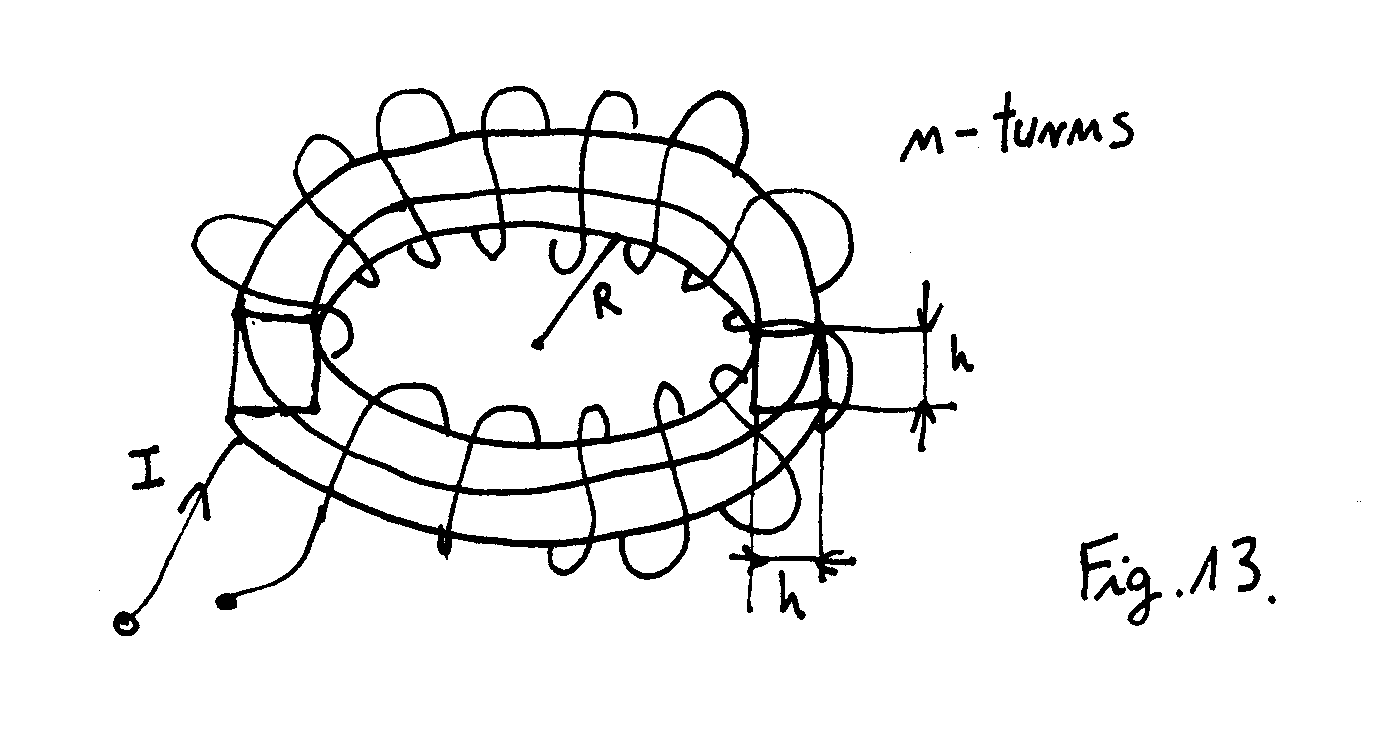 n-turns
R
h
I
h
Fig. 13.